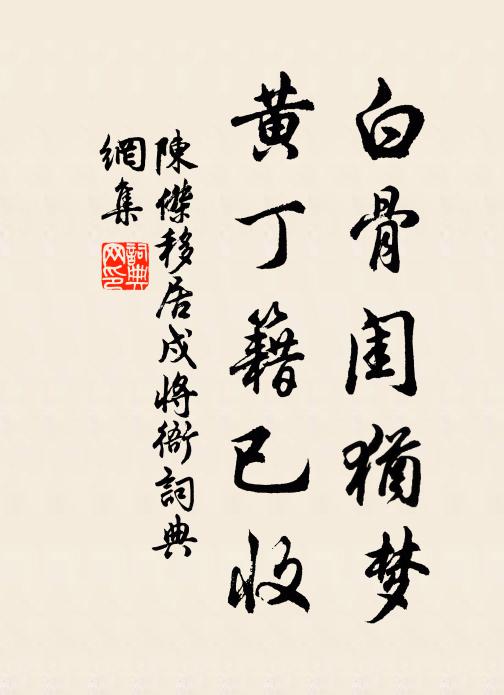 白骨闺犹梦
黄丁籍已收
陳傑移居戍將衙詞典
網集
詞典網印